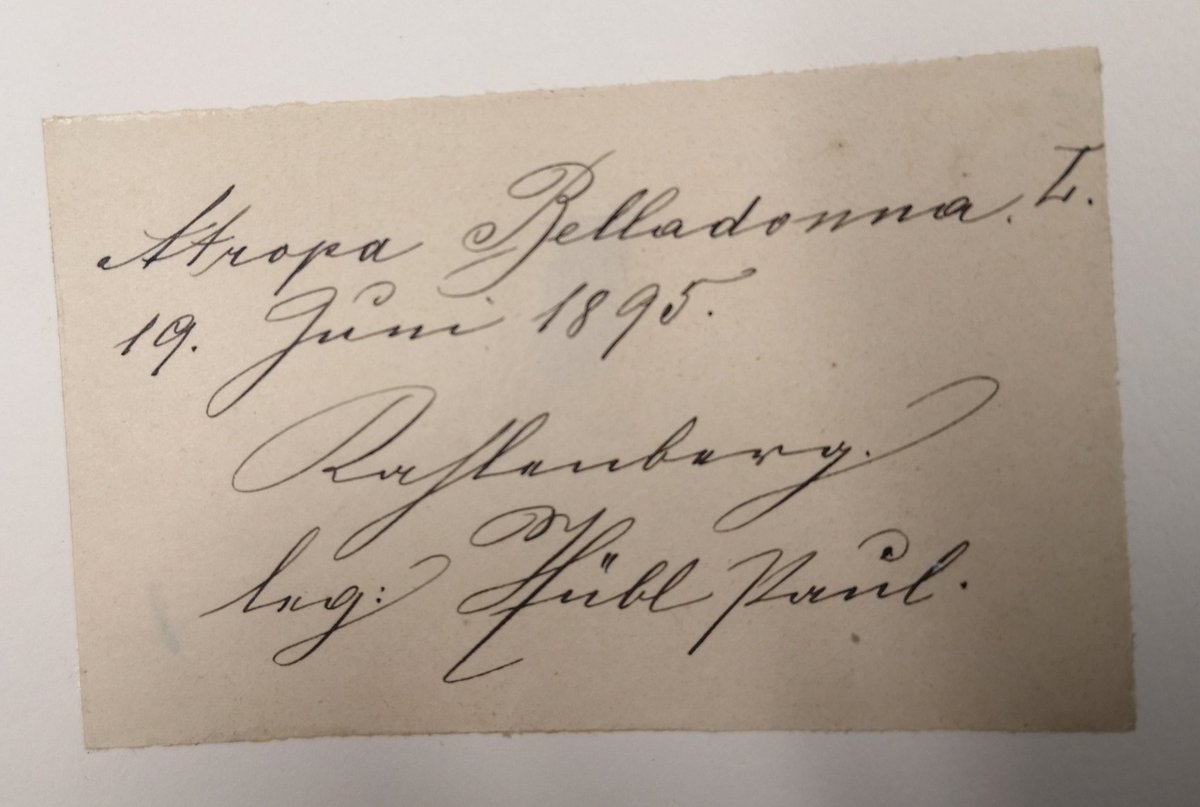 Atropa Belladonna. L.
19. Juni 1895.
Kahlenberg.
leg: Hübl Paul.